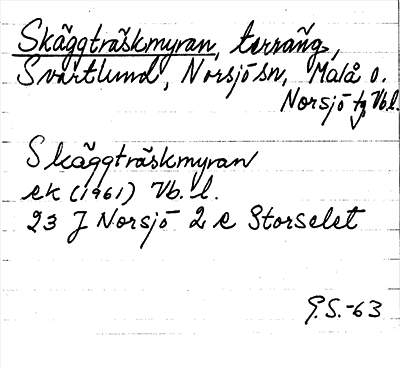 Skäggträskmyran, terräng,
Svartlund, Norsjö sn, Malå o.
Norsjö tg Vbl.
Skäggträskmyran
ek (1961) Vb. l.
23 J Norsjö 2 e Storselet
G.S.-63